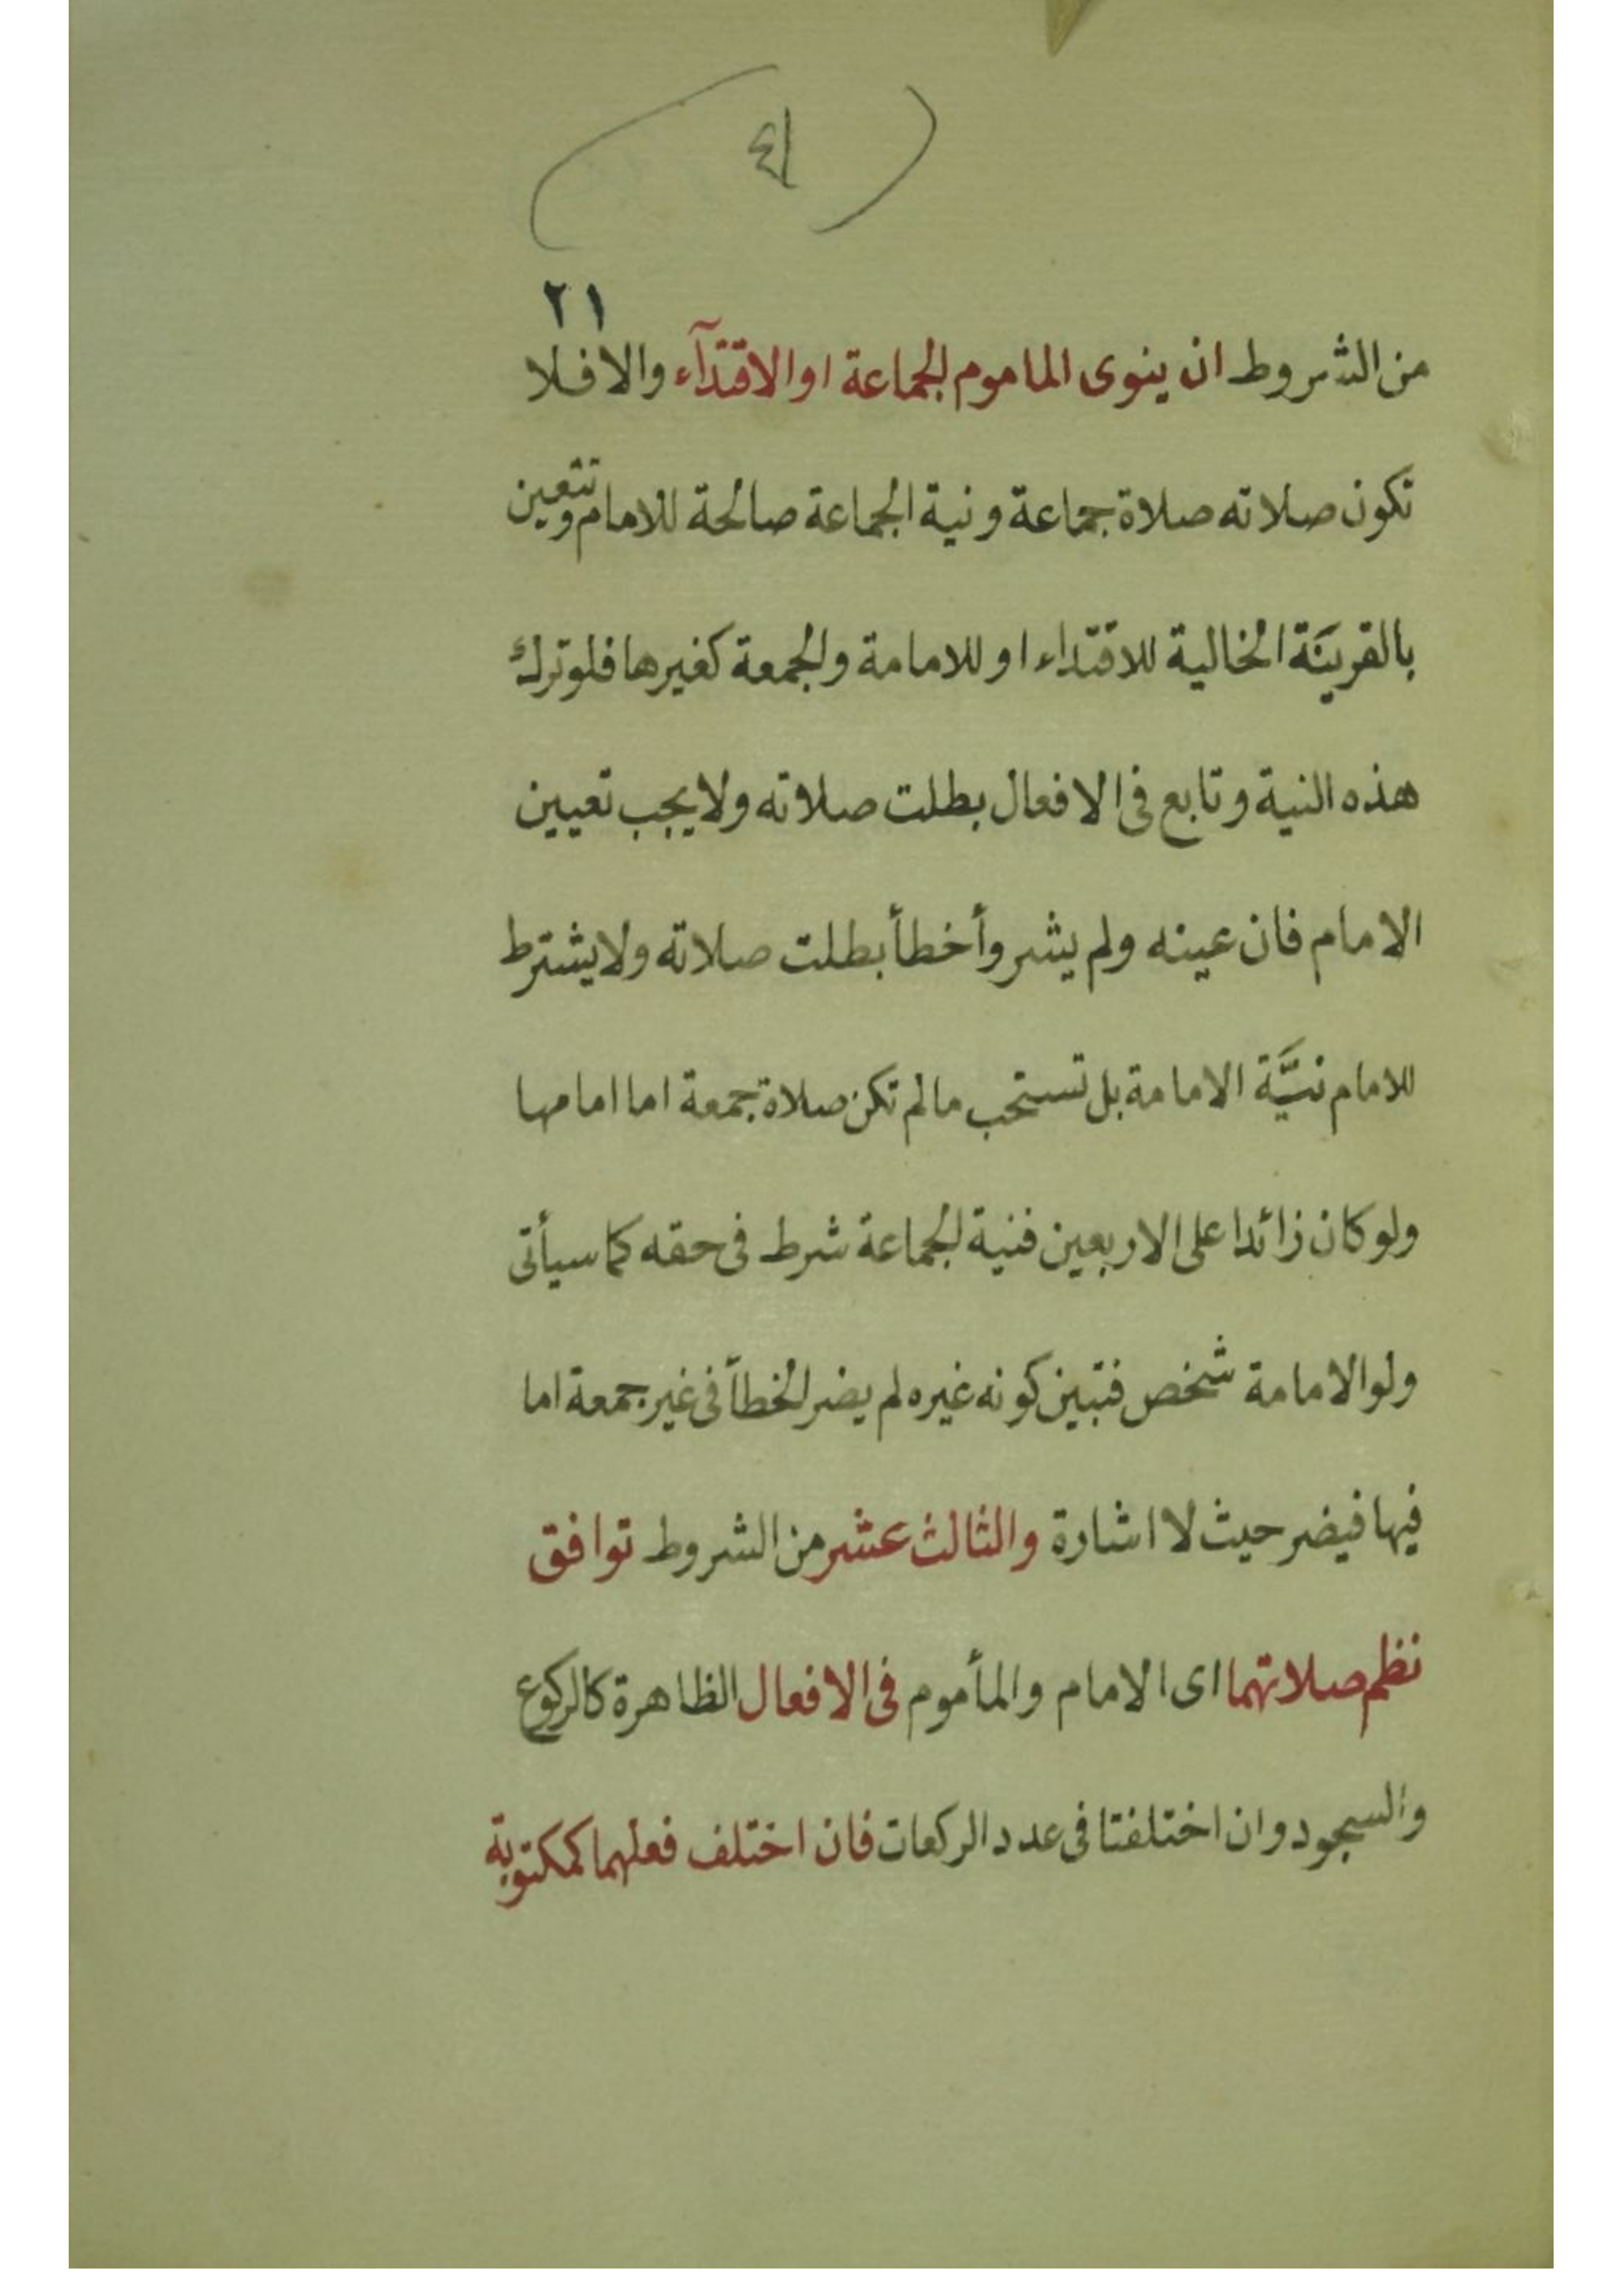 (٤١)
٢١
من الشروط ان ينوى الماموم الجماعة او الاقتدآء والا فلا
تكون صلاته صلاة جماعة ونية الجماعة صالحة للامام وتتعين
بالقرينَة الخالية للاقتداء او للامامة والجمعة كغيرها فلو ترك
هذه النية وتابع فى الافعال بطلت صلاته ولا يجب تعيين
الامام فان عينه ولم يشر وأخطأ بطلت صلاته ولا يشترط
للامام نيَّة الامامة بل تستحب مالم تكن صلاة جمعة اما امامها
ولو كان زائدا على الاربعين فنية الجماعة شرط فى حقه كما سيأتى
ولوالامامة شخص فتبين كونه غيره لم يضر الخطأ فى غير جمعة اما
فيها فيضر حيث لا اشارة والثالث عشر من الشروط توافق
نظم صلاتهما اى الامام والمأموم فى الافعال الظاهرة كالركوع
والسجود وان اختلفتا فى عدد الركعات فان اختلف فعلهما كمكتوبة